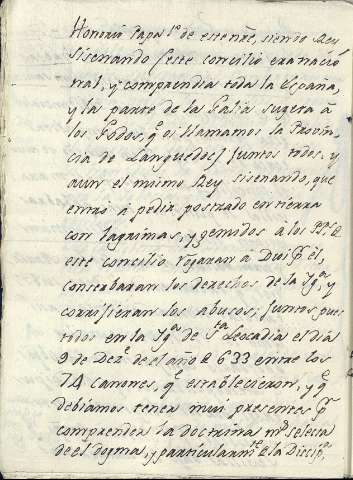 Honorio Papa 1º de este nñe, siendo Rey
Sisenando (este concilio era nacio
nal, y comprendia toda la España,
y la parte de la Galia sugeta à
los Godos, q̃ oi llamamos la Provin,
cia de Languedoc) Juntos todos, y
aun el mismo Rey sisenando, que
entró á pedir postrado en tierra
con lagrimas, y gemidos à los Pes. d
este concilio rogaran à Dios pr èl,
conserbaran los derechos de la Yga, y
corrigieran los abusos; Juntos pues
todos en la Yga de Sta Leocadia el dia
9 de Deze de el año d 633 entre los
74 canones, q̃ establecieron, y q̃
debiamos tener mui presentes pr
comprender la doctrina ms selecta
de el dogma, y particularmte d la Discipa